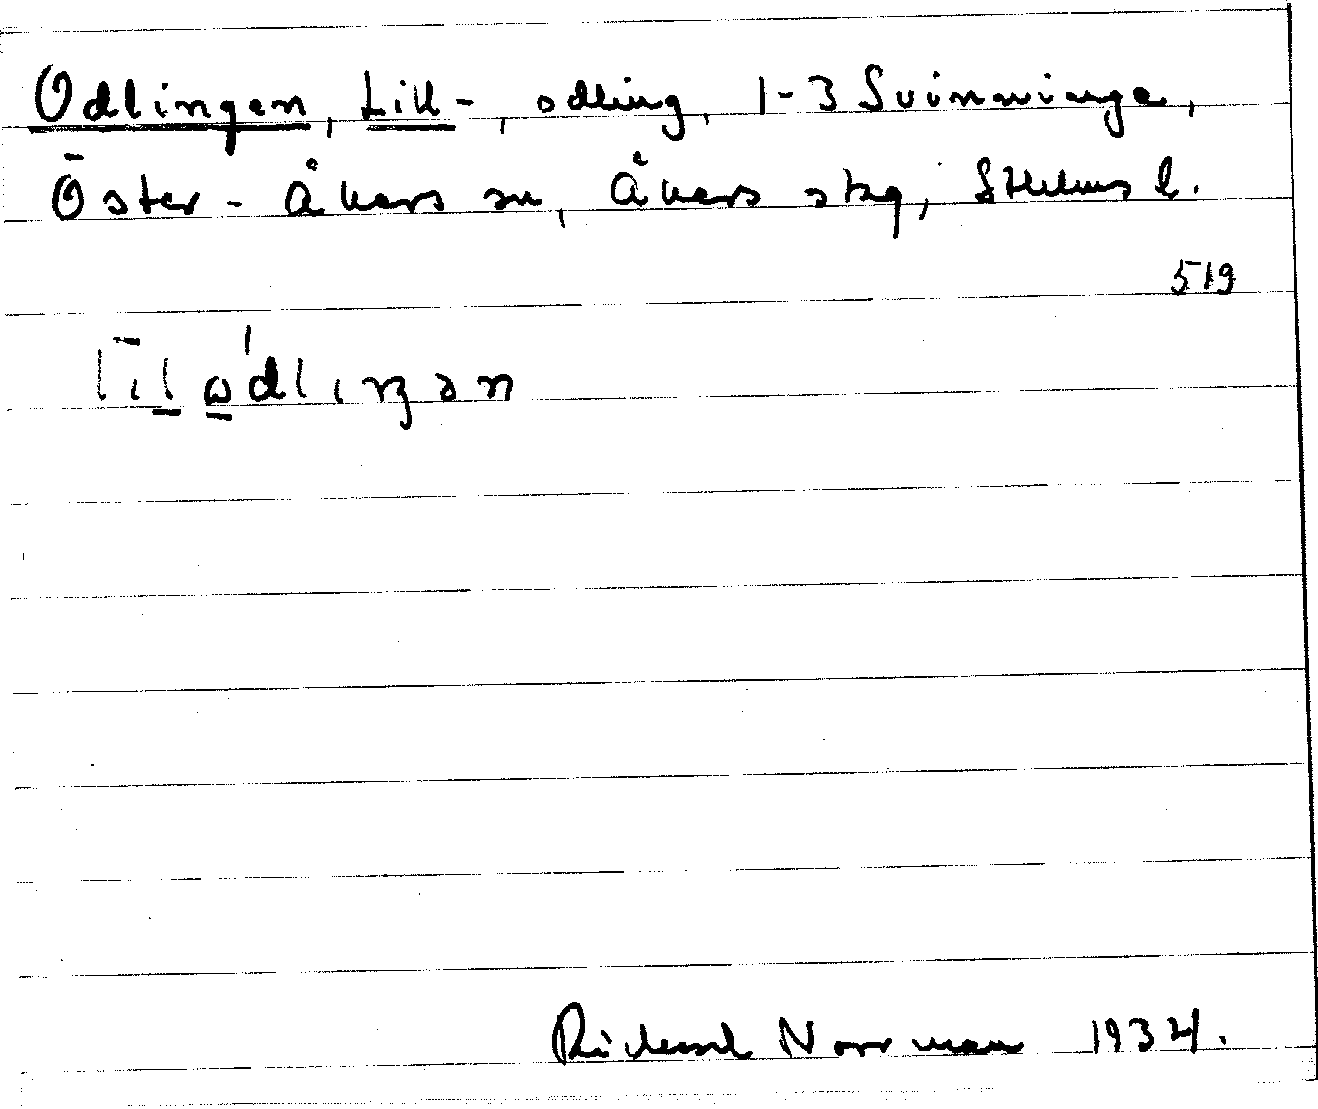 Odlingen, Lill-, odling, 1-3 Svinninge,
Öster-Åkers sn, Åkers skg, Sthlms l.
519
Rickard Norrman 1934.